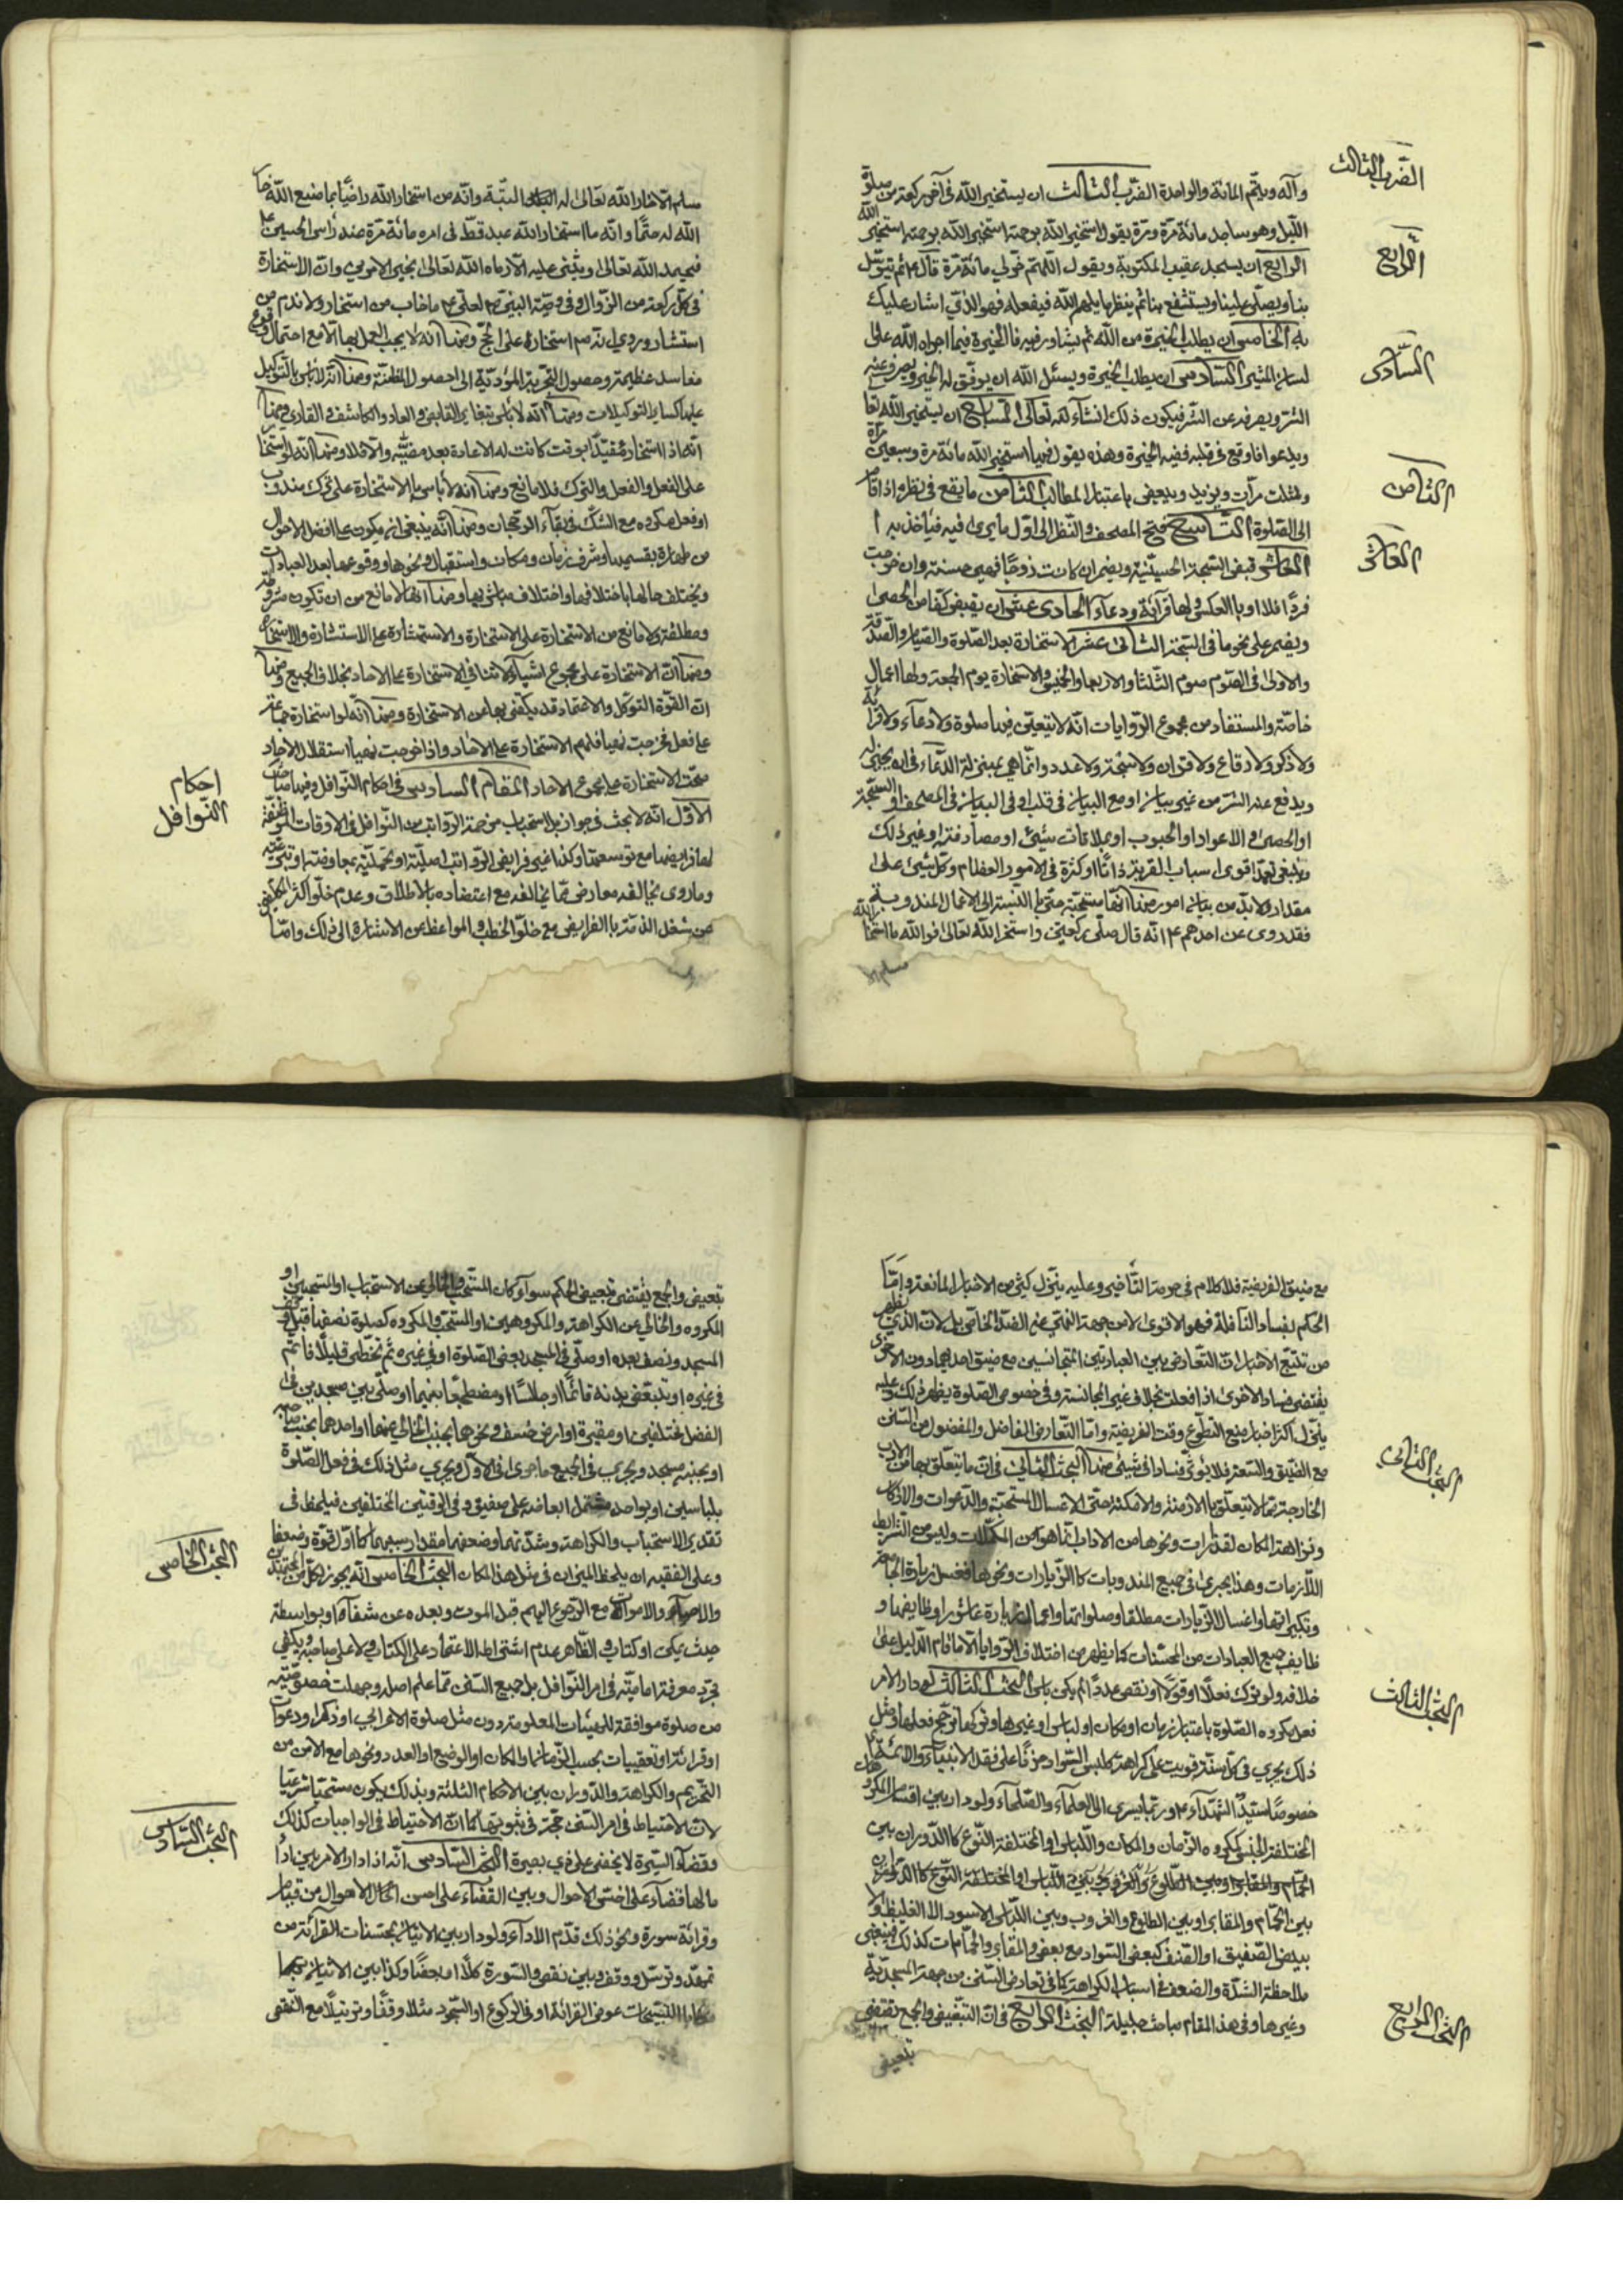 الضرب الثالث
وآله ويتم المائة والواحدة الضرب الثالث ان يستخير الله في آخر ركعة من صلوة
الليل وهو ساجد مائة مرة ومرة يقول استخير الله برحمته استخير الله برحمته استخير الله
الرابع
الرابع ان يسجد عقيب المكتوبة ويقول اللهم خر لي مائة مرة قال ثم يتوسل
بنا ويصلي علينا ويستشفع بنا ثم ينظر ما يلهم الله فيفعله فهو الذي اشار عليك
به الخامس ان يطلب الخيرة من الله ثم يشاور فيه فالخيرة فيما اجراه الله على
السادس
لسان المشير السادس ان يطلب الخيرة ويسئل الله ان يوفق له الخير ويصرف عنه
الشر ويصرفه عن الشر فيكون ذلك انشاء الله تعالى السابع ان يستخير الله تعا
ويدعو فما وقع في قلبه ففيه الخيرة وهذه يقول فيها استخير الله مائة مرة وسبعين مرة
الثامن
وثلث مرات ويزيد وينقص باعتبار المطالب الثامن ما يقع في نظره اذا قام
الى الصلوة التاسع فتح المصحف والنظر الى اول ما يرى فيه فيأخذ به
العاشر
العاشر قبض السبحة الحسينية ويضمر ان كانت زوجا فهي حسنة وان خرجت
فردا فلا او بالعكس ولها قرائة ودعاء الحادي عشر ان يقبض كفا من الحصى
ويضمر على نحو ما في السبحة الثاني عشر الاستخارة بعد الصلوة والصيام والصدقة
والاولى في الصوم صوم الثلثا والاربعا والخميس والاستخارة يوم الجمعة ولها اعمال
خاصة والمستفاد من مجموع الروايات انه لا يتعين فيها صلوة ولا دعاء ولا قرائة
ولا ذكر ولا رقاع ولا قران ولا سبحة ولا عدد وانما هي بمنزلة الدعاء في ان يختار له
ويدفع عنه الشر من غير بيان او مع البيان في قلب او في البيان في المصحف او السبحة
او الحصى او الاعواد او الحبوب او بملاقات شيئ او مصادفته او غير ذلك
وينبغي تعمد اقوى اسباب القربة ذاتا او كثرة في الامور العظام وكل شيئ على
مقداره ولا بد من بيان امور منها انها مستحبة حتى بالنسبة الى الاعمال المندوبة
فقد روي عن احدهم انه قال صلي ركعتين واستخر الله تعالى فو الله ما استخار الله
مسلم الا
مسلم الا خار الله تعالى له البتة وانه من استخار الله راضيا بما صنع الله خار
الله له حتما وانه ما استخار الله عبد قط في امره مائة مرة عند رأس الحسين
فيحمد الله تعالى ويثني عليه الا رماه الله تعالى بخير الامرين وان الاستخارة
في كل ركعة من الزوال وفي وصية النبي لعلي ما خاب من استخار ولا ندم من
استشار وروي انه استخارة على الحج ومنها انه لا يجب العمل بها الا مع احتمال وقوع
مفاسد عظيمة وحصول التجربة المؤدية الى حصول المظنة ومنها انه لا بأس بالتوكيل
عليها كساير التوكيلات ومنها انه لا بأس بتغاير القابض والعاد والكاشف والقاري ومنها
انه اذا استخار مقيدا بوقت كانت له الاعادة بعد مضيه والا فلا ومنها انه لو استخار
على الفعل والفعل والترك فلا مانع ومنها انه لا بأس بالاستخارة على ترك مندوب
او فعل مكروه مع الشك في بقاء الرجحان ومنها انه ينبغي ان يكون على افضل الاحوال
من طهارة بقسميها وشرف زمان ومكان واستقبال ونحوها ووقوعها بعد العبادات
ويختلف حالها باختلافها واختلاف مباشريها ومنها انها لا مانع من ان تكون مشروطة
ومطلقة ولا مانع من الاستخارة على الاستخارة والاستشارة على الاستشارة والاستخارة
ومنها ان الاستخارة على مجموع اشياء لا تنافي الاستخارة على الاحاد بخلاف الجميع ومنها
ان القوة التوكل والاعتماد قد يكتفى بها عن الاستخارة ومنها انه لو استخار جماعة
على فعل فخرجت نهيا فلهم الاستخارة على الاحاد واذا خرجت نهيا استقلال الاحاد
احكام
النوافل
صحت الاستخارة على مجموع الاحاد المقام السادس في احكام النوافل وفيه مباحث
الاول انه لا بحث في جواز بل استحباب مزاحمة الرواتب من النوافل في الاوقات الموظفة
لها فرايضها مع توسعتها وكذا غير فرايض الرواتب اصلية او تحملية بمعاوضة او تبرعية
وما روي بخالفه معارض بما يخالفه مع اعتضاده بالاطلاق وعدم خلو اكثر المكلفين
من شغل الذمة بالفرايض مع خلو الخطب والمواعظ من الاشارة الى ذلك واما
مع ضيق الفريضة فلا كلام في حرمة الثاني وعليه ينزل كثير من الاخبار المانعة واما
الحكم بفساد النافلة فهو الاقوى لا من جهة النهي عن الضد الخاص بل لان الذي يظهر
من تتبع الاخبار ان التعارض بين العبادتين المتجانستين مع ضيق احديهما دون الاخرى
يقتضي فساد الاخرى اذا فعلت بخلاف غير المجانسة وفي خصوص الصلوة يظهر ذلك وعليه
ينزل اكثر اخبار منع التطوع وقت الفريضة واما التعارض الفاضل والمفضول من السنن
البحث الثاني
مع الضيق والسعة فلا يؤثر فسادا في شيئ منها البحث الثاني في ان ما يتعلق بها من الاداب
الخارجة مما لا يتعلق بالازمنة والامكنة حتى الاغسال المستحبة والدعوات والاذكار
ونزاهة المكان لقذرات ونحوها من الاداب انما هو من المكملات وليس من الشرائط
اللازمات وهذا يجري في جميع المندوبات كالزيارات ونحوها فغسل زيارة الجامعة
وتكبيراتها واغسال الزيارات مطلقا وصلواتها واعمال زيارة عاشورا وظايفها و
ظايف جميع العبادات من المحسنات كما يظهر من اختلاف الروايات الا ما قام الدليل على
البحث الثالث
خلافه ولو ترك فعلا او قولا او نقص عددا لم يكن باس البحث الثالث لو دار الامر
فعل مكروه الصلوة باعتبار زمان او مكان او لباس او غيرها وتركها ترجح فعلها ومثل
ذلك يجري في كل سنة قويت على كراهة كلبس السواد حزنا على فقد الانبياء والائمة
خصوصا سيد الشهداء وربما يسري الى العلماء والصلحاء ولو دار بين اقسام المكروهات
المختلفة الجنس كمكروه الزمان والمكان واللباس او المختلفة النوع كالدوران بين
بين الحمام والمقابر او بين الطلوع والغروب وبين اللباس الاسود
ملاحظة الشدة والضعف في اسباب الكراهة كما في تعارض السنن من جهة المسجدية
البحث الرابع
وغيرها وفي هذا المقام مباحث جليلة البحث الرابع في ان التبعيض والجمع يقتضي
تبعيض
تبعيض والجمع يقتضي تبعيض الحكم سواء كان المستحب والخالي عن الاستحباب او المستحبين او
المكروه والخالي عن الكراهة والمكروهين او المستحب والمكروه كصلوة نصفها قبل
المسجد ونصف بعده او صلى في المسجد بعض الصلوة او في غيره ثم تخطى قليلا فاتم
في غيره او تبعض بدنه قائما او جالسا او مضطجعا بينهما او صلى بين مسجدين في
الفضل مختلفين او مقبرة او ارض خسف ونحوها بجنب الخالي عنها او احدهما بجنب صاحبه
او بجنبه مسجد ويجري في الجميع ما جرى في الاول ويجري مثل ذلك في فعل الصلوة
بلباسين او بواحد مشتمل ابعاضه على صفتين وفي الوقتين المختلفين فيلحظ في
تقدير الاستحباب والكراهة وشدتهما وضعفهما مقدار سببهما كما اول قوة وضعفا
البحث الخامس
وعلى الفقيه ان يلحظ الميزان في مثل هذا المكان البحث الخامس انه يجوز لكل من المجتهدين
والاحياء والاموات مع الرجوع اليهم قبل الموت وبعده عن شفاه او بواسطة
حديث يحكى او كتاب والظاهر عدم اشتراط الاعتماد على الكتاب ولا على صاحبه ويكفي
مجرد معرفة امامية في امر النوافل بل جميع السنن مما علم اصله وجهلت خصوصيته
من صلوة موافقة للهيئات المعلومة دون مثل صلوة الاعرابي او ذكر او دعوات
او قرائة او تعقيبات بحسب الزمان او المكان او الوضع او العدد ونحوها مع الامن من
التحريم والكراهة والدوران بين الاحكام الثلثة وبذلك يكون مستحبا شرعيا
البحث السادس
لان الاحتياط في امر السنن حجة في ثبوتها كما ان الاحتياط في الواجبات كذلك
وقضاء السيرة لا يخفى على ذي بصيرة البحث السادس انه اذا دار الامر بين اداء
مالها قضاء على اخس الاحوال وبين القضاء على احسن الحال الاحوال من قيام
وقرائة سورة ونحو ذلك قدم الاداء ولو دار بين الاتيان بمحسنات القرائة من
تمهد وترسل ووقف وبين نقص والسورة كلا او بعضا وكذا بين الاتيان
التسبيحات عوض القرائة او في الركوع او السجود مثلا وقفا وترتيلا مع النقص